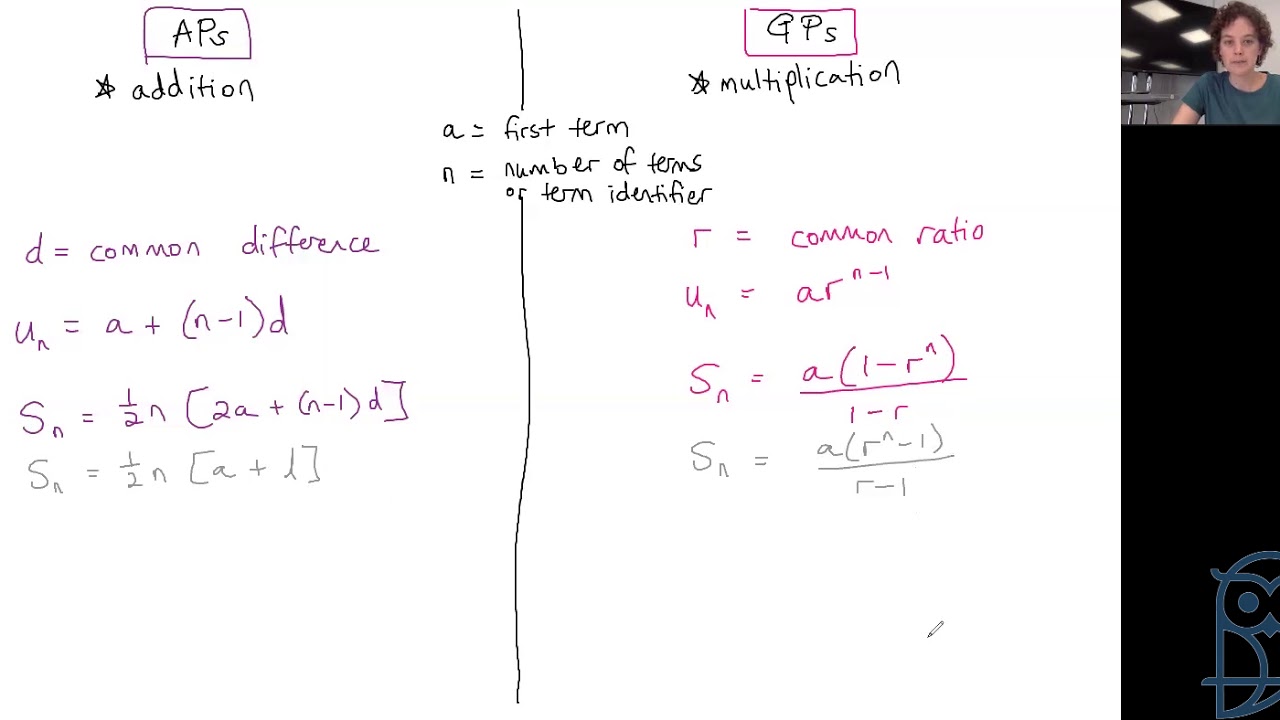 APs
* addition
GPs
* multiplication
a = first term
n = number of terms
or term identifier
d = common difference
uₙ = a + (n-1)d
Sₙ = ½n [2a + (n-1)d]
Sₙ = ½n [a + l]
r = common ratio
uₙ = arⁿ⁻¹
Sₙ = a(1-rⁿ)
1-r
Sₙ = a(rⁿ-1)
r-1